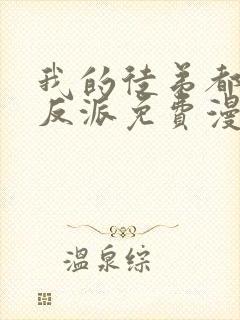 我的徒弟都
反派免费漫
温泉综